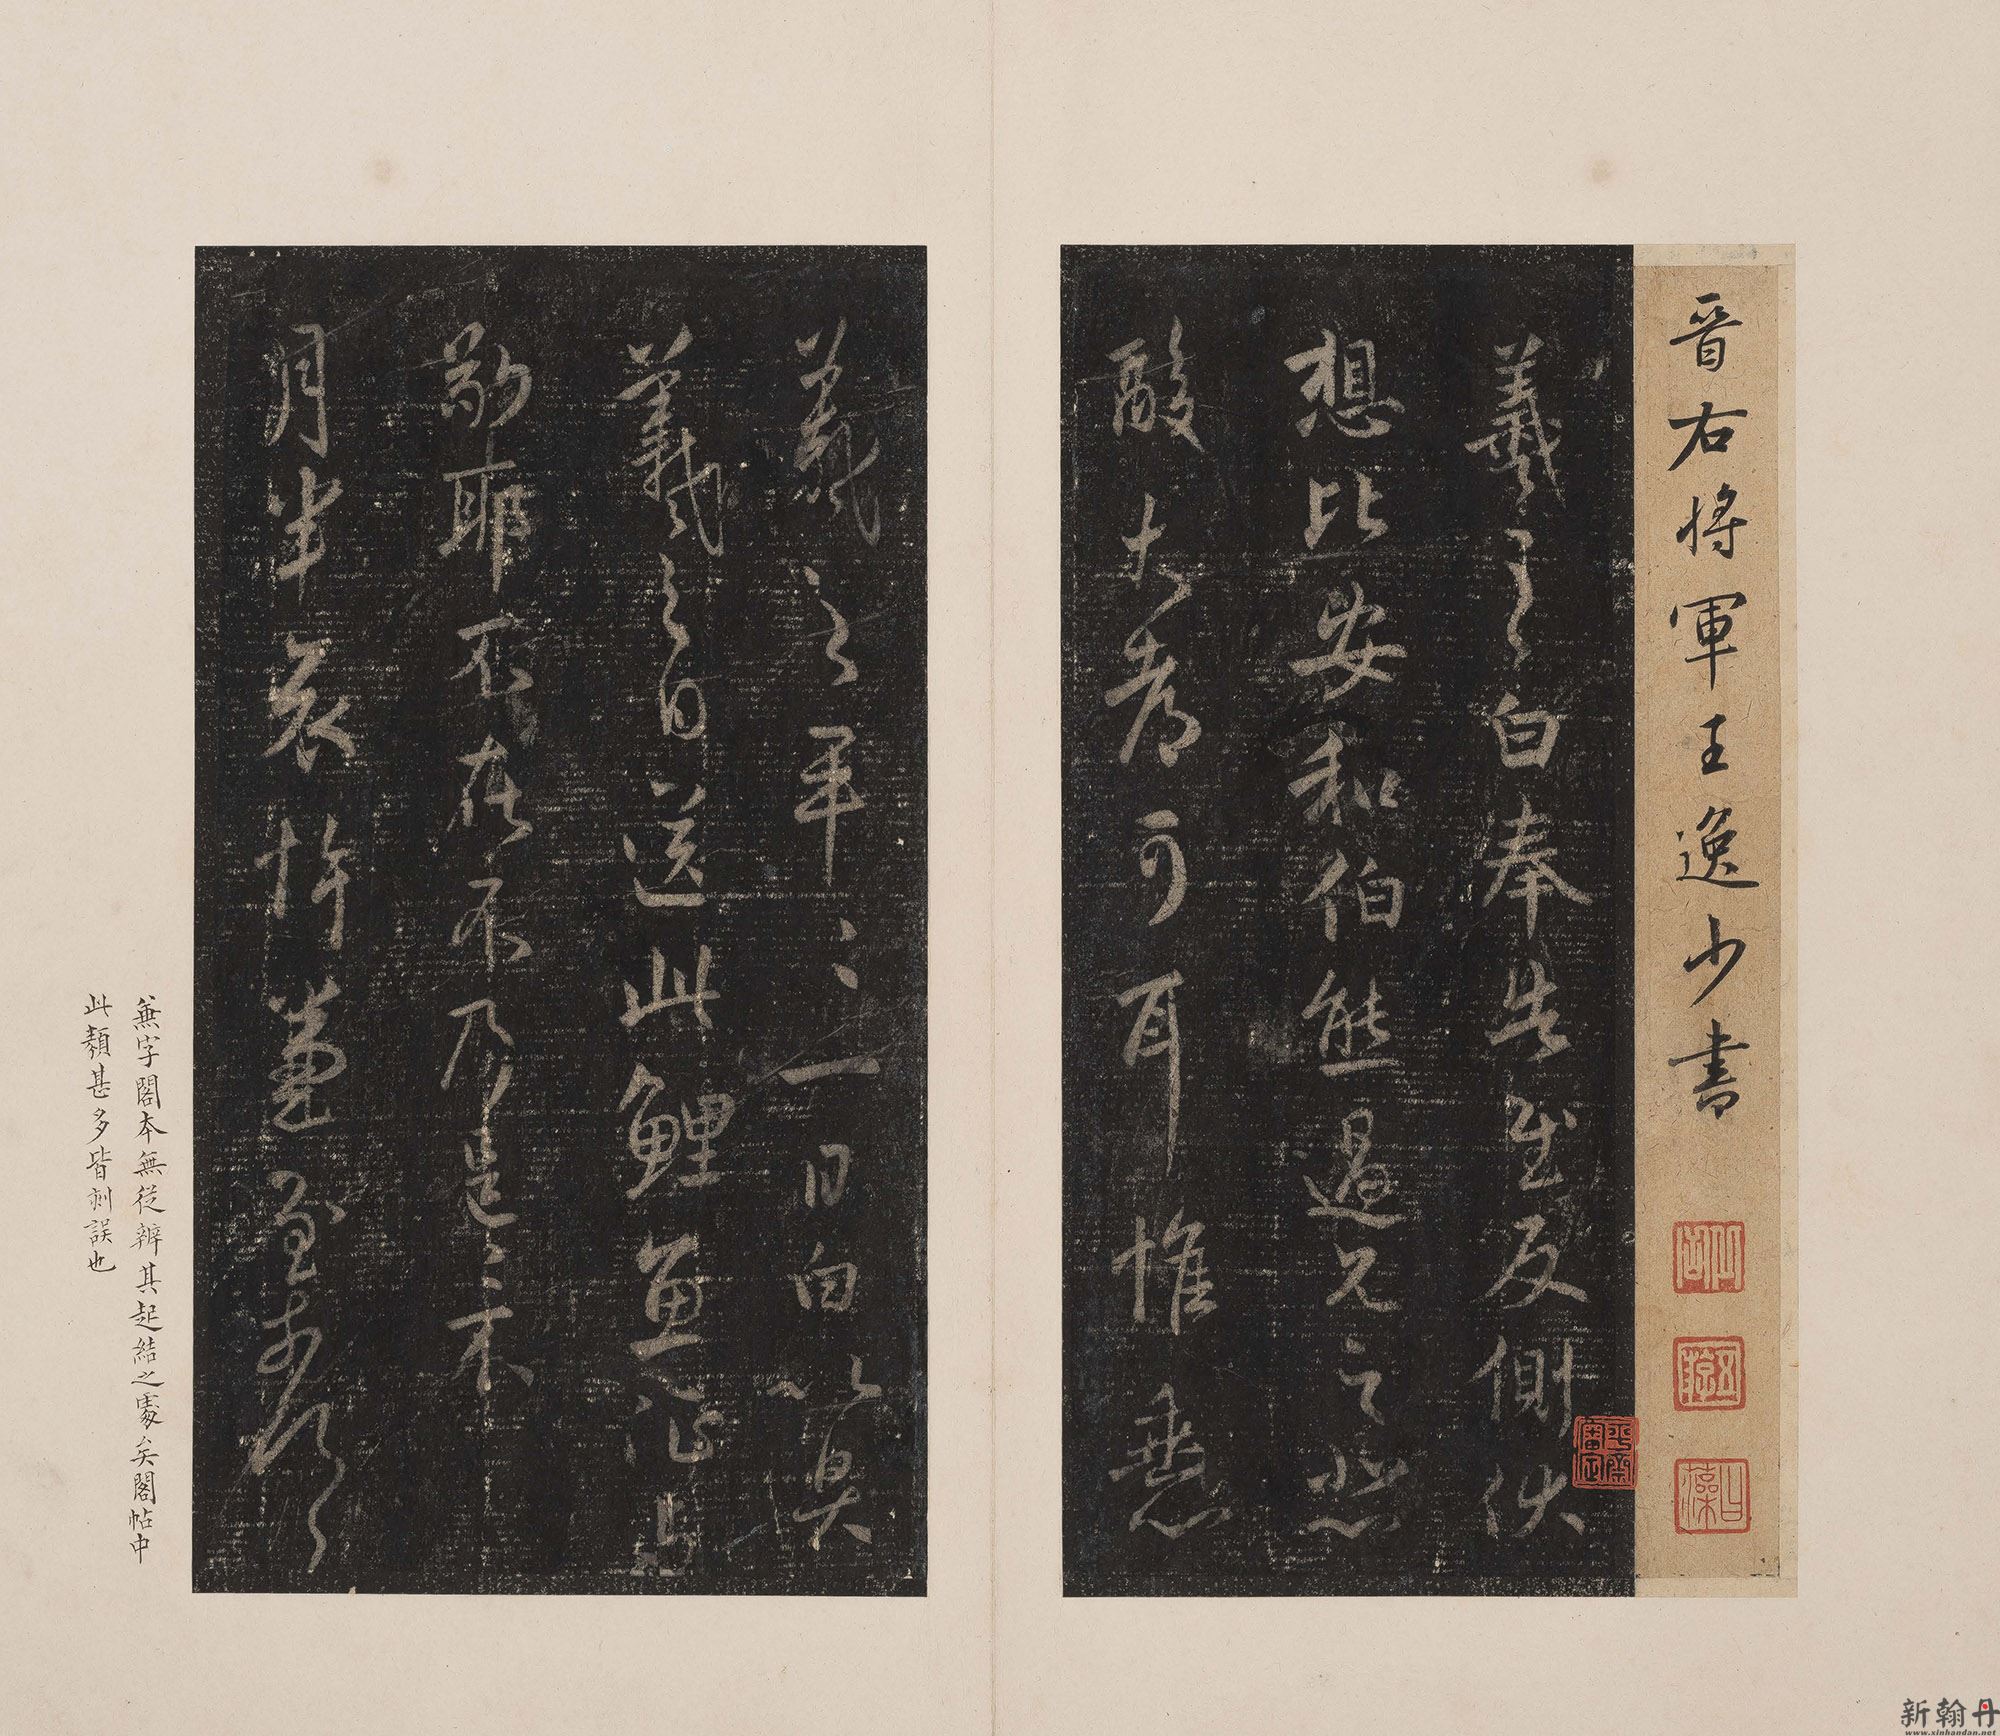 晉右將軍王逸少書
羲之白奉告慰反側伏
想比安和伯熊過見之悲
酸大都可耳惟垂
羲之頓首一日白以具
羲之白送此鯉魚征與
敬耶不在不乃是是不
月半哀悼兼至奈何
無字閣本無從辨其起結之處矣閣帖中
此類甚多皆刻誤也
新翰丹
www.xinhandan.net